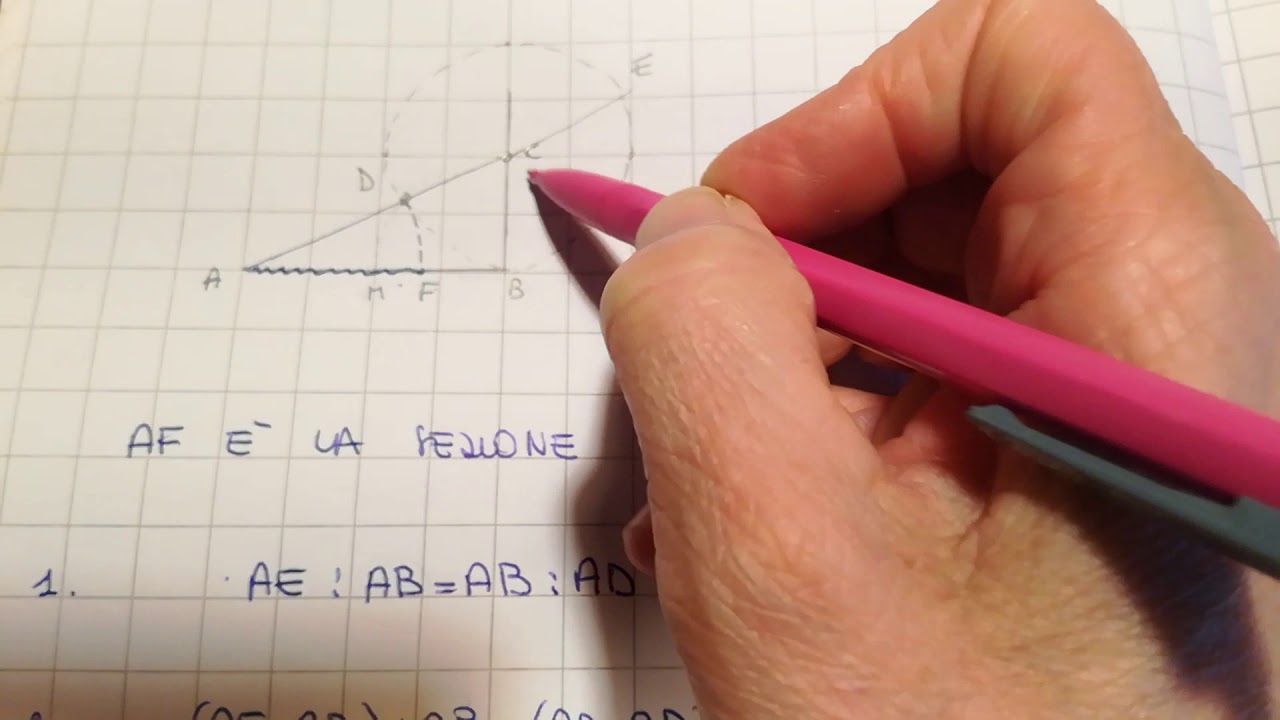 E
C
D
A M F B
AF E` LA SEZIONE
1. AE : AB = AB : AD